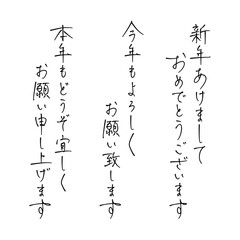 新年あけまして
おめでとうございます
今年もよろしく
お願い致します
本年もどうぞ宜しく
お願い申し上げます